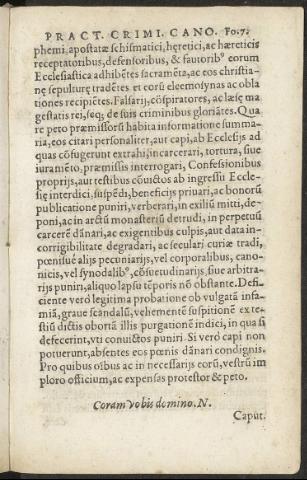 PRACT. CRIMI. CANO. Fo.7.
phemi, apostatæ schismatici, hęretici, ac hæreticis
receptatotibus, defensoribus, & fautoribꝰ eorum
Ecclesiastica adhibētes sacramēta, ac eos christia-
nę sepulturę tradētes et corū eleemosynas ac obla
tiones recipiētes. Falsarij, cōspiratores, ac læsę ma
gestatis rei, seqʒ de suis criminibus gloriātes. Qua
re peto præmissorū habita informatione summa-
ria, eos citari personaliter, aut capi, ab Ecclesijs ad
quas cōfugerunt extrahi, in carcerari, tortura, siue
iuramēto, præmissis interrogari, Confessionibus
proprijs, aut testibus cōuictos ab ingressu Eccle-
się interdici, suspēdi, beneficijs priuari, ac bonorū
publicatione puniri, verberari, in exiliū mitti, de-
poni, ac in arctū monasteriū detrudi, in perpetuū
carcerē dānari, ac exigentibus culpis, aut data in-
corrigibilitate degradari, ac seculari curiæ tradi,
pœnisué alijs pecuniarijs, vel corporalibus, cano-
nicis, vel synodalibꝰ, cōsuetudinarijs, siue arbitra-
rijs puniri, aliquo lapsu tēporis nō obstante. Defi-
ciente verò legitima probatione ob vulgatā infa-
miā, graue scandalū, vehementē suspitionē ex te-
stiū dictis obortā illis purgationē indici, in qua si
defecerint, vti conuictos puniri. Si verò capi non
potuerunt, absentes eos pœnis dānari condignis.
Pro quibus oībus ac in necessarijs eorū, vestrū im
ploro officium, ac expensas protestor & peto.
Coram vobis domino. N.
Caput.